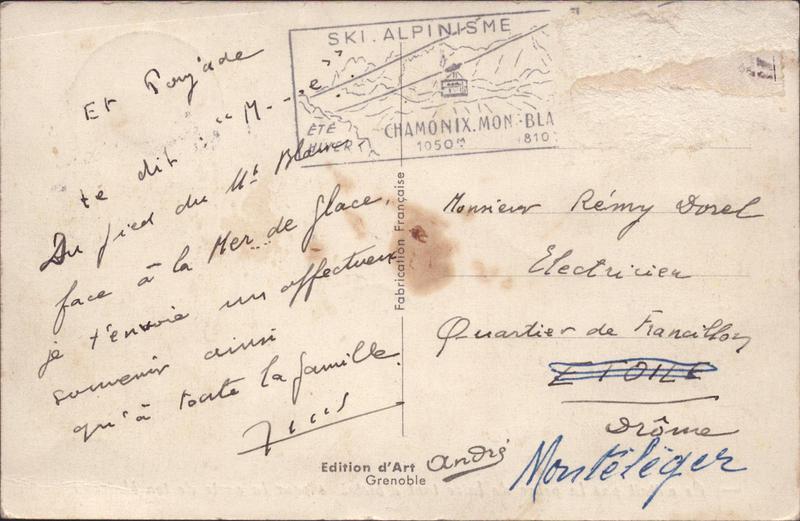 Et Pougade
te dit : "M----e"
Du pied du Mt Blanc
face à la Mer de glace,
je t'envoie un affectueux
souvenir ainsi
qu'à toute la famille.
SKI. ALPINISME
ÉTÉ
HIVER
CHAMONIX.MON.-BLA
1050m 1810
Fabrication Française
Monsieur Rémy Dorel
Electricien
Quartier de Francillon
ETOILE
Drôme
Montéléger
Edition d'Art
Grenoble
andré